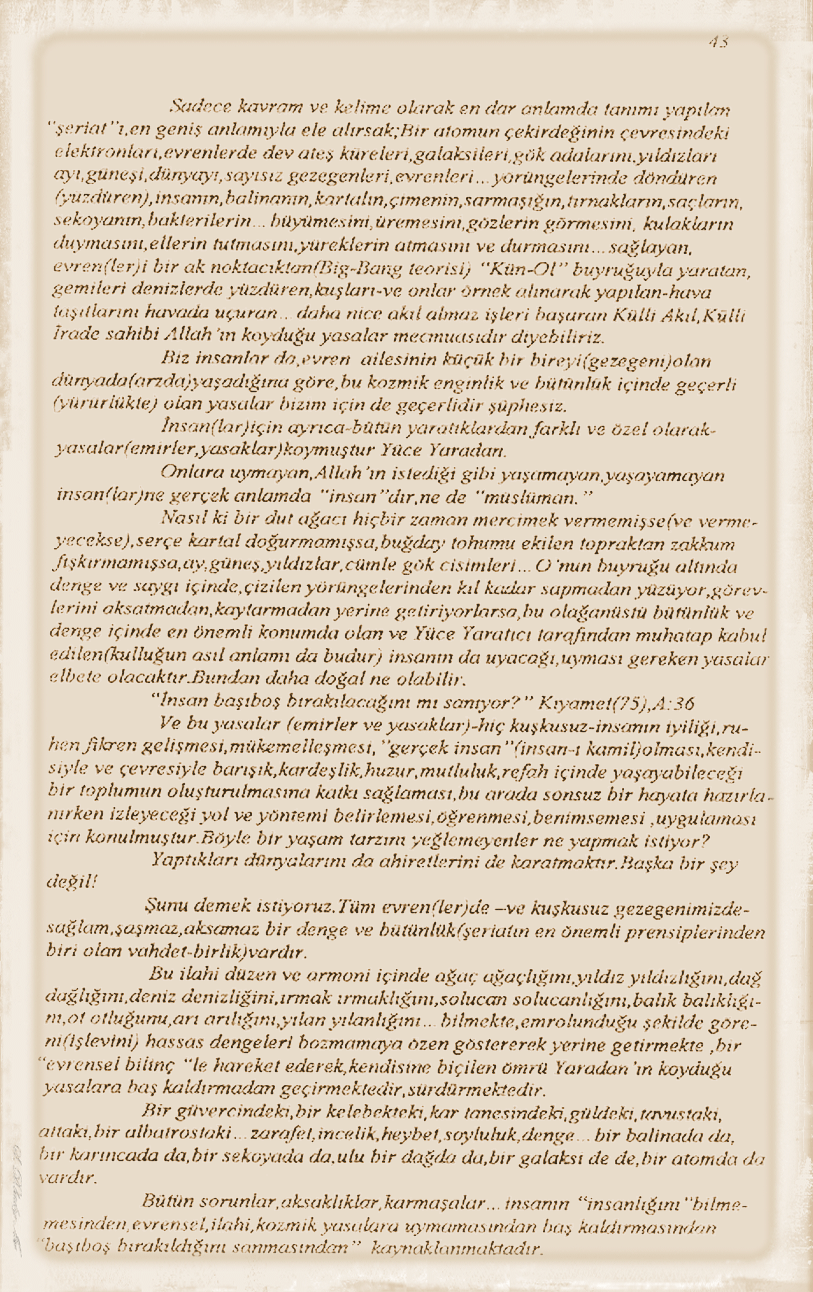 43
Sadece kavram ve kelime olarak en dar anlamda tanımı yapılan
"şeriat"ı,en geniş anlamıyla ele alırsak;Bir atomun çekirdeğinin çevresindeki
elektronları,evrenlerde dev ateş küreleri,galaksileri,gök adalarını,yıldızları
ayı,güneşi,dünyayı,sayısız gezegenleri,evrenleri...yörüngelerinde döndüren
(yüzdüren),insanın,balinanın,kartalın,çimenin,sarmaşığın,tırnakların,saçların,
sekoyanın,bakterilerin... büyümesini,üremesini,gözlerin görmesini, kulakların
duymasını,ellerin tutmasını,yüreklerin atmasını ve durmasını...sağlayan,
evren(ler)i bir ak noktacıktan(Big-Bang teorisi) "Kün-Ol" buyruğuyla yaratan,
gemileri denizlerde yüzdüren,kuşları-ve onlar örnek alınarak yapılan-hava
taşıtlarını havada uçuran.. daha nice akıl almaz işleri başaran Külli Akıl,Külli
İrade sahibi Allah'ın koyduğu yasalar mecmuasıdır diyebiliriz.
Biz insanlar da,evren ailesinin küçük bir bireyi(gezegeni)olan
dünyada(arzda)yaşadığına göre,bu kozmik enginlik ve bütünlük içinde geçerli
(yürürlükte) olan yasalar bizim için de geçerlidir şüphesiz.
İnsan(lar)için ayrıca-bütün yaratıklardan farklı ve özel olarak-
yasalar(emirler,yasaklar)koymuştur Yüce Yaradan.
Onlara uymayan,Allah'ın istediği gibi yaşamayan,yaşayamayan
insan(lar)ne gerçek anlamda "insan"dır,ne de "müslüman."
Nasıl ki bir dut ağacı hiçbir zaman mercimek vermemişse(ve verme-
yecekse),serçe kartal doğurmamışsa,buğday tohumu ekilen topraktan zakkum
fışkırmamışsa,ay,güneş,yıldızlar,cümle gök cisimleri... O'nun buyruğu altında
denge ve saygı içinde,çizilen yörüngelerinden kıl kadar sapmadan yüzüyor,görev-
lerini aksatmadan,kaytarmadan yerine getiriyorlarsa,bu olağanüstü bütünlük ve
denge içinde en önemli konumda olan ve Yüce Yaratıcı tarafından muhatap kabul
edilen(kulluğun asıl anlamı da budur) insanın da uyacağı,uyması gereken yasalar
elbete olacaktır.Bundan daha doğal ne olabilir.
"İnsan başıboş bırakılacağını mı sanıyor?" Kıyamet(75),A:36
Ve bu yasalar (emirler ve yasaklar)-hiç kuşkusuz-insanın iyiliği,ru-
hen fikren gelişmesi,mükemelleşmesi,"gerçek insan"(insan-ı kamil)olması,kendi-
siyle ve çevresiyle barışık,kardeşlik,huzur,mutluluk,refah içinde yaşayabileceği
bir toplumun oluşturulmasına katkı sağlaması,bu arada sonsuz bir hayata hazırla-
nırken izleyeceği yol ve yöntemi belirlemesi,öğrenmesi,benimsemesi ,uygulaması
için konulmuştur.Böyle bir yaşam tarzını yeğlemeyenler ne yapmak istiyor?
Yaptıkları dünyalarını da ahiretlerini de karatmaktır.Başka bir şey
değil!
Şunu demek istiyoruz.Tüm evren(ler)de –ve kuşkusuz gezegenimizde-
sağlam,şaşmaz,aksamaz bir denge ve bütünlük(şeriatın en önemli prensiplerinden
biri olan vahdet-birlik)vardır.
Bu ilahi düzen ve armoni içinde ağaç ağaçlığını,yıldız yıldızlığını,dağ
dağlığını,deniz denizliğini,ırmak ırmaklığını,solucan solucanlığını,balık balıklığı-
nı,ot otluğunu,arı arılığını,yılan yılanlığını... bilmekte,emrolunduğu şekilde göre-
ni(işlevini) hassas dengeleri bozmamaya özen göstererek yerine getirmekte ,bir
"evrensel bilinç "le hareket ederek,kendisine biçilen ömrü Yaradan'ın koyduğu
yasalara baş kaldırmadan geçirmektedir,sürdürmektedir.
Bir güvercindeki,bir kelebekteki,kar tanesindeki,güldeki,tavustaki,
attaki,bir albatrostaki...zarafet,incelik,heybet,soyluluk,denge... bir balinada da,
bir karıncada da,bir sekoyada da,ulu bir dağda da,bir galaksi de de,bir atomda da
vardır.
Bütün sorunlar,aksaklıklar,karmaşalar... insanın "insanlığını"bilme-
mesinden,evrensel,ilahi,kozmik yasalara uymamasından baş kaldırmasından
"başıboş bırakıldığını sanmasından" kaynaklanmaktadır.